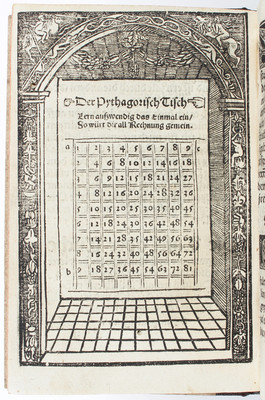 Der Pythagorisch Tisch
Lern außwendig das Einmal ein/
So würt dir all Rechnung gemein.
a 1 2 3 4 5 6 7 8 9 c
2 4 6 8 10 12 14 16 18
3 6 9 12 15 18 21 24 27
4 8 12 16 20 24 28 32 36
5 10 15 20 25 30 35 40 45
6 12 18 24 30 36 42 48 54
7 14 21 28 35 42 49 56 63
8 16 24 32 40 48 56 64 72
b 9 18 27 36 45 54 63 72 81